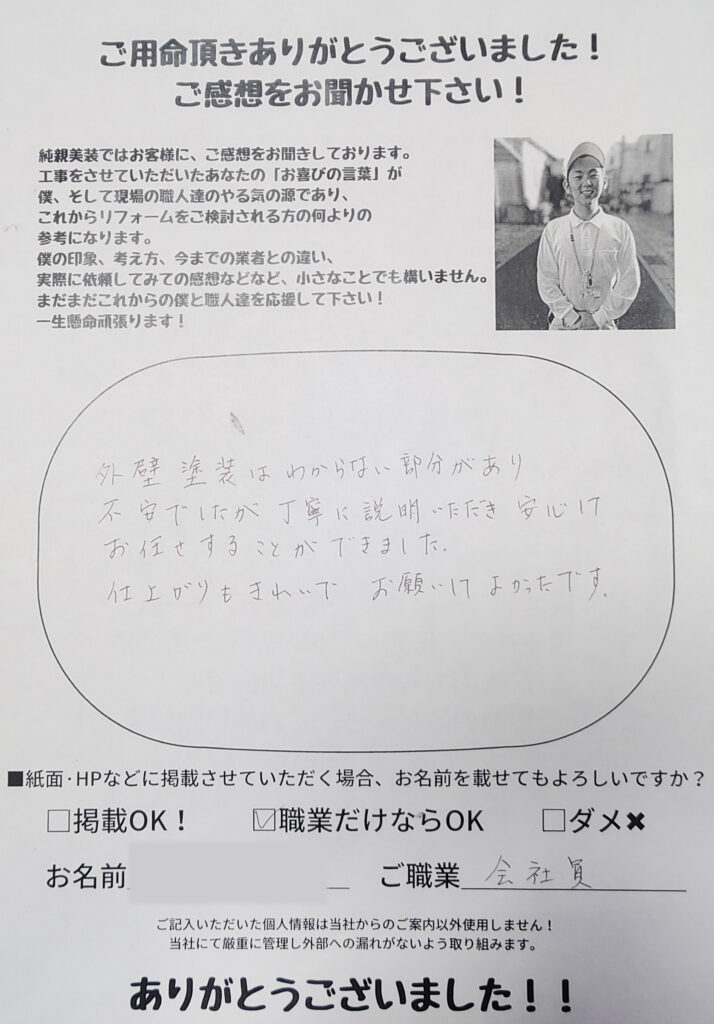 ご用命頂きありがとうございました！
ご感想をお聞かせ下さい！
純親美装ではお客様に、ご感想をお聞きしております。
工事をさせていただいたあなたの「お喜びの言葉」が
僕、そして現場の職人達のやる気の源であり、
これからリフォームをご検討される方の何よりの
参考になります。
僕の印象、考え方、今までの業者との違い、
実際に依頼してみての感想などなど、小さなことでも構いません。
まだまだこれからの僕と職人達を応援して下さい！
一生懸命頑張ります！
外壁塗装はわからない部分があり
不安でしたが丁寧に説明いただき安心して
お任せすることができました。
仕上がりもきれいで お願いしてよかったです。
■紙面･HPなどに掲載させていただく場合、お名前を載せてもよろしいですか？
□掲載OK！ ☑職業だけならOK □ダメ✖
お名前 ご職業 会社員
ご記入いただいた個人情報は当社からのご案内以外使用しません！
当社にて厳重に管理し外部への漏れがないよう取り組みます。
ありがとうございました！！